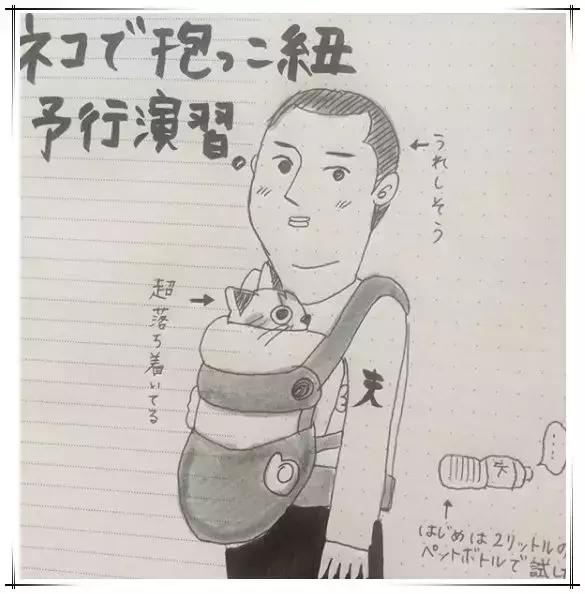 ネコで抱っこ紐
予行演習。
うれしそう
超落ち着いてる
夫
はじめは2リットルの
ペットボトルで試し